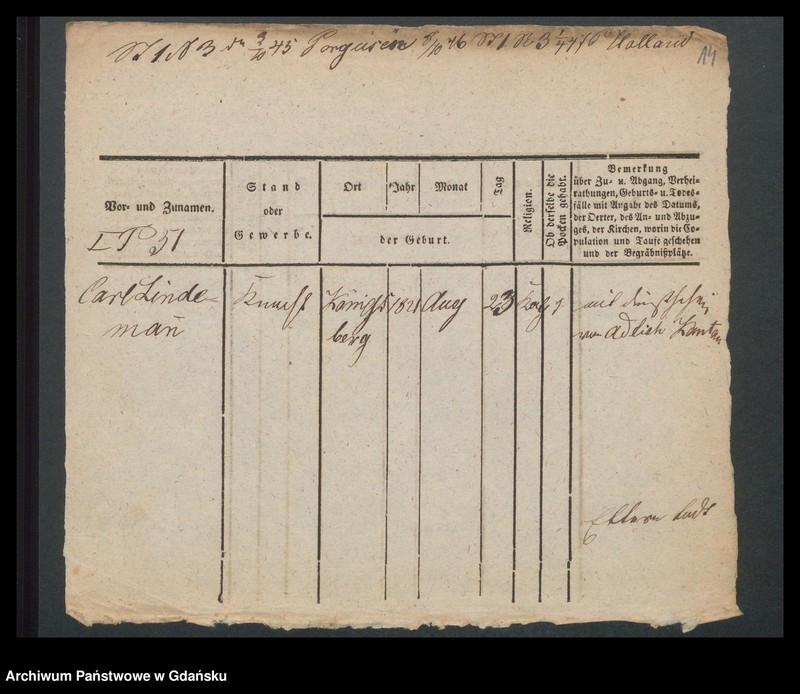 St 1 N 3 d. 9/10 45 8/10 46 St 1 N 3 Holland
14
Vor- und Zunamen.
I P 51
Stand
oder
Gewerbe.
Ort
Jahr
Monat
Tag
der Geburt.
Religion.
Ob derselbe die
Pocken gehabt.
Bemerkung
über Zu- u. Abgang, Verhei-
rathungen, Geburts- u. Todes-
fälle mit Angabe des Datums,
der Oerter, des An- und Abzu-
ges, der Kirchen, worin die Co-
pulation und Taufe geschehen
und der Begräbnißplätze.
Carl Linde-
mañ
Knecht
Königs
berg
Aug
23
aus
von Adlich
Eltern todt
Archiwum Państwowe w Gdańsku